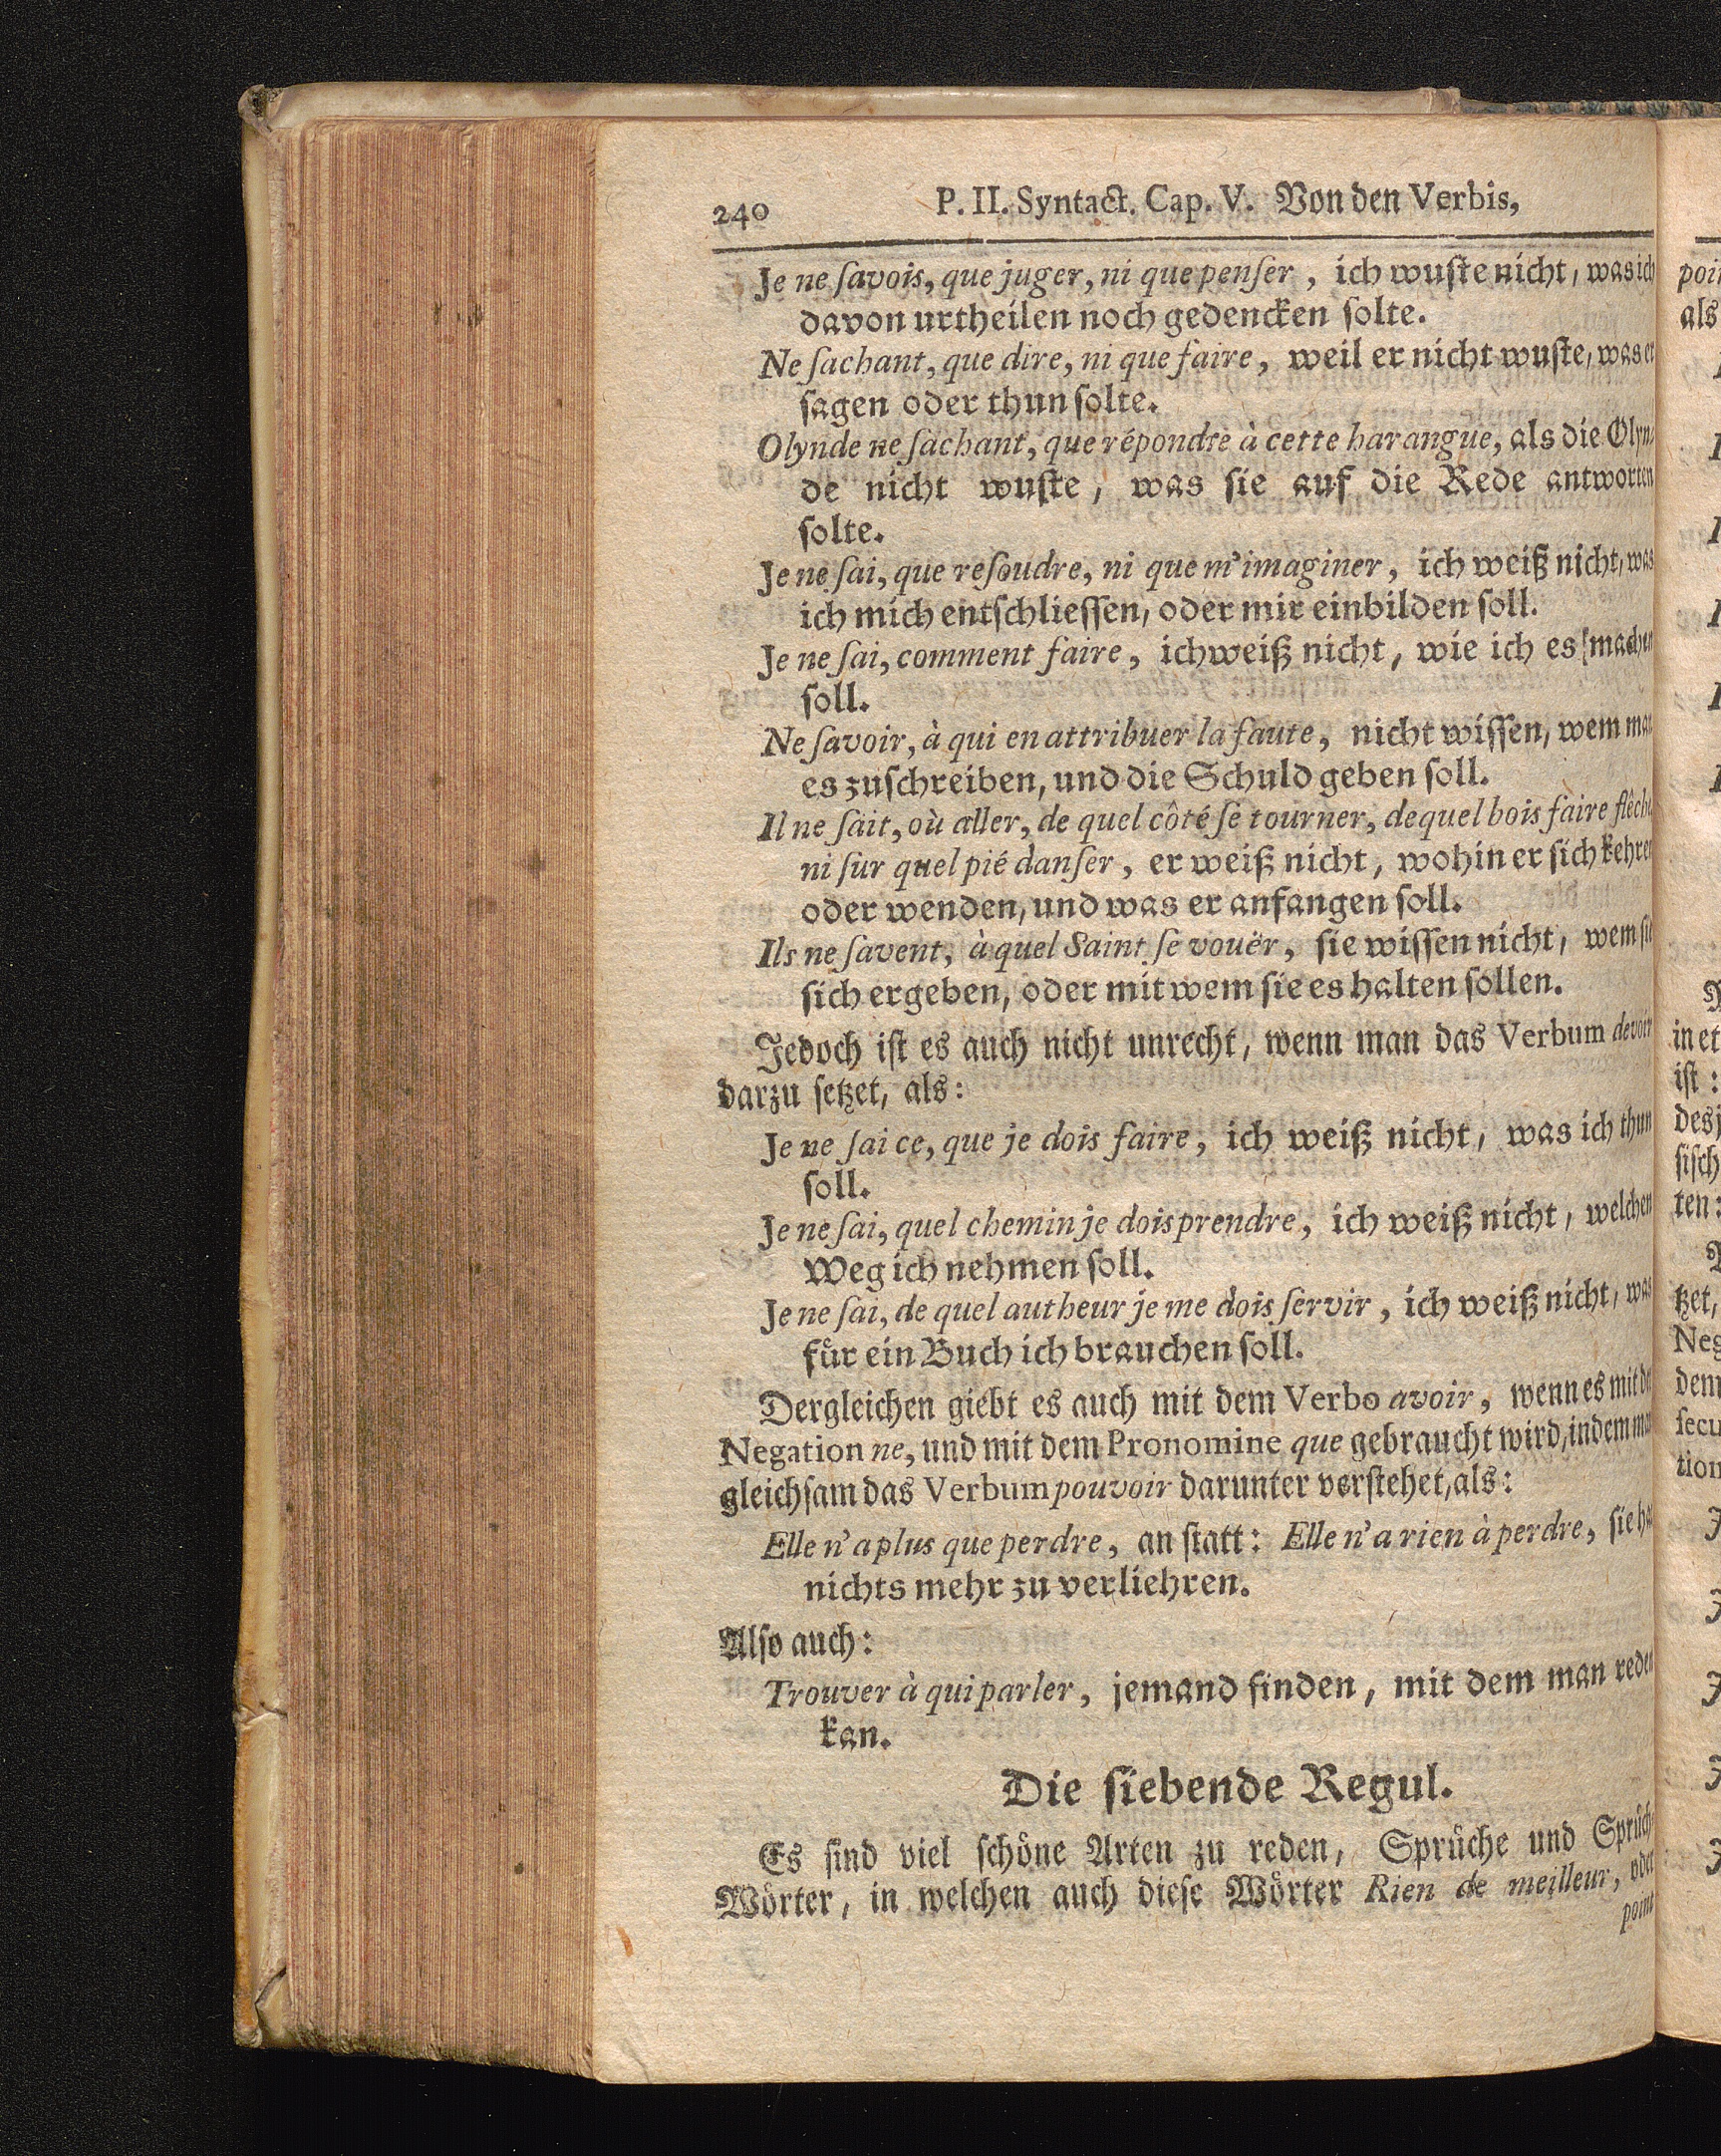 240 P. II. Syntact. Cap. V. Von den Verbis,
Je ne ſavois, que juger, ni que penſer, ich wuſte nicht, was ich
davon urtheilen noch gedencken ſolte.
Ne ſachant, que dire, ni que faire, weil er nicht wuſte, was er
ſagen oder thun ſolte.
Olynde ne ſachant, que répondre à cette harangue, als die Olyn-
de nicht wuſte, was ſie auf die Rede antworten
ſolte.
Je ne ſai, que reſoudre, ni que m'imaginer, ich weiß nicht, was
ich mich entſchlieſſen, oder mir einbilden ſoll.
Je ne ſai, comment faire, ich weiß nicht, wie ich es machen
ſoll.
Ne ſavoir, à qui en attribuer la faute, nicht wiſſen, wem man
es zuſchreiben, und die Schuld geben ſoll.
Il ne ſait, où aller, de quel côté ſe tourner, de quel bois faire flêche
ni ſur quel pié danſer, er weiß nicht, wohin er ſich kehren
oder wenden, und was er anfangen ſoll.
Ils ne ſavent, à quel Saint ſe vouër, ſie wiſſen nicht, wem ſie
ſich ergeben, oder mit wem ſie es halten ſollen.
Jedoch iſt es auch nicht unrecht, wenn man das Verbum devoir
darzu ſetzet, als:
Je ne ſai ce, que je dois faire, ich weiß nicht, was ich thun
ſoll.
Je ne ſai, quel chemin je dois prendre, ich weiß nicht, welchen
Weg ich nehmen ſoll.
Je ne ſai, de quel autheur je me dois ſervir, ich weiß nicht, was
fuͤr ein Buch ich brauchen ſoll.
Dergleichen giebt es auch mit dem Verbo avoir, wenn es mit der
Negation ne, und mit dem Pronomine que gebraucht wird, indem man
gleichſam das Verbum pouvoir darunter verſtehet, als:
Elle n'a plus que perdre, an ſtatt: Elle n'a rien à perdre, ſie hat
nichts mehr zu verliehren.
Alſo auch:
Trouver à qui parler, jemand finden, mit dem man reden
kan.
Die ſiebende Regul.
Es ſind viel ſchoͤne Arten zu reden, Spruͤche und Spruͤch-
Woͤrter, in welchen auch dieſe Woͤrter Rien de meilleur, oder
point
als
in et
iſt:
ten:
tzet,